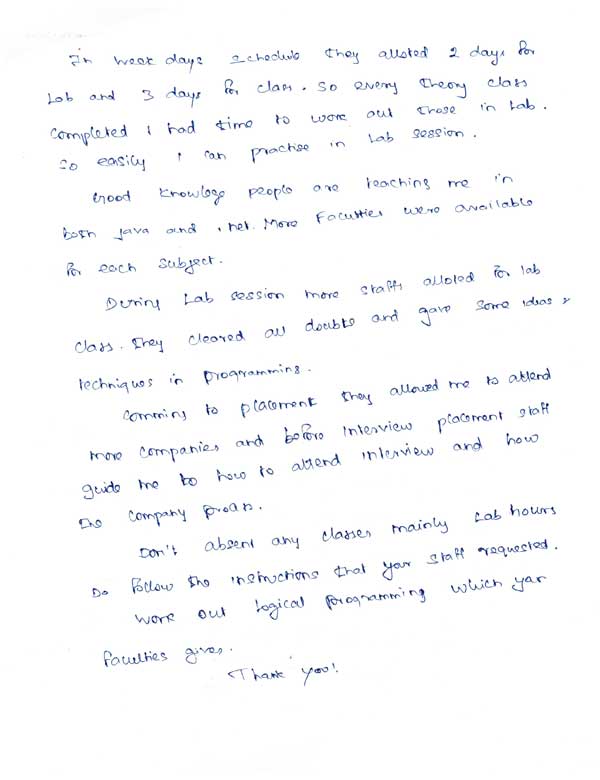 In week days schedule they alloted 2 days for
Lab and 3 days for class. So every theory class
completed I had time to work out those in Lab.
So easily I can practise in Lab session.
Good knowlege people are teaching me in
both java and .net. More Faculties were available
for each subject.
During Lab session more staffs alloted for lab
class. they cleared all doubts and gave some ideas &
techniques in programming.
Comming to placement they allowed me to attend
more companies and before interview placement staff
guide me to how to attend interview and how
the company
Don't absent any classes mainly Lab hours
Do follow the instructions that your staff requested.
Work out logical programming which your
faculties gives.
Thank you!